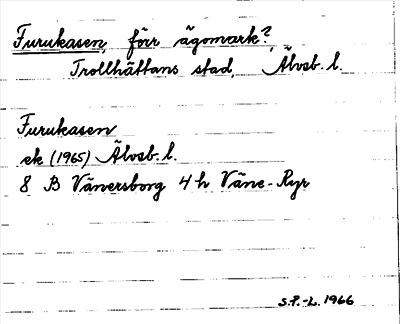 Furukasen, förr ägomark?,
Trollhättans stad, Älvsb. l.
Furukasen
ek (1965) Älvsb. l.
8 B Vänersborg 4 h Väne-Ryr
S.P.-L. 1966